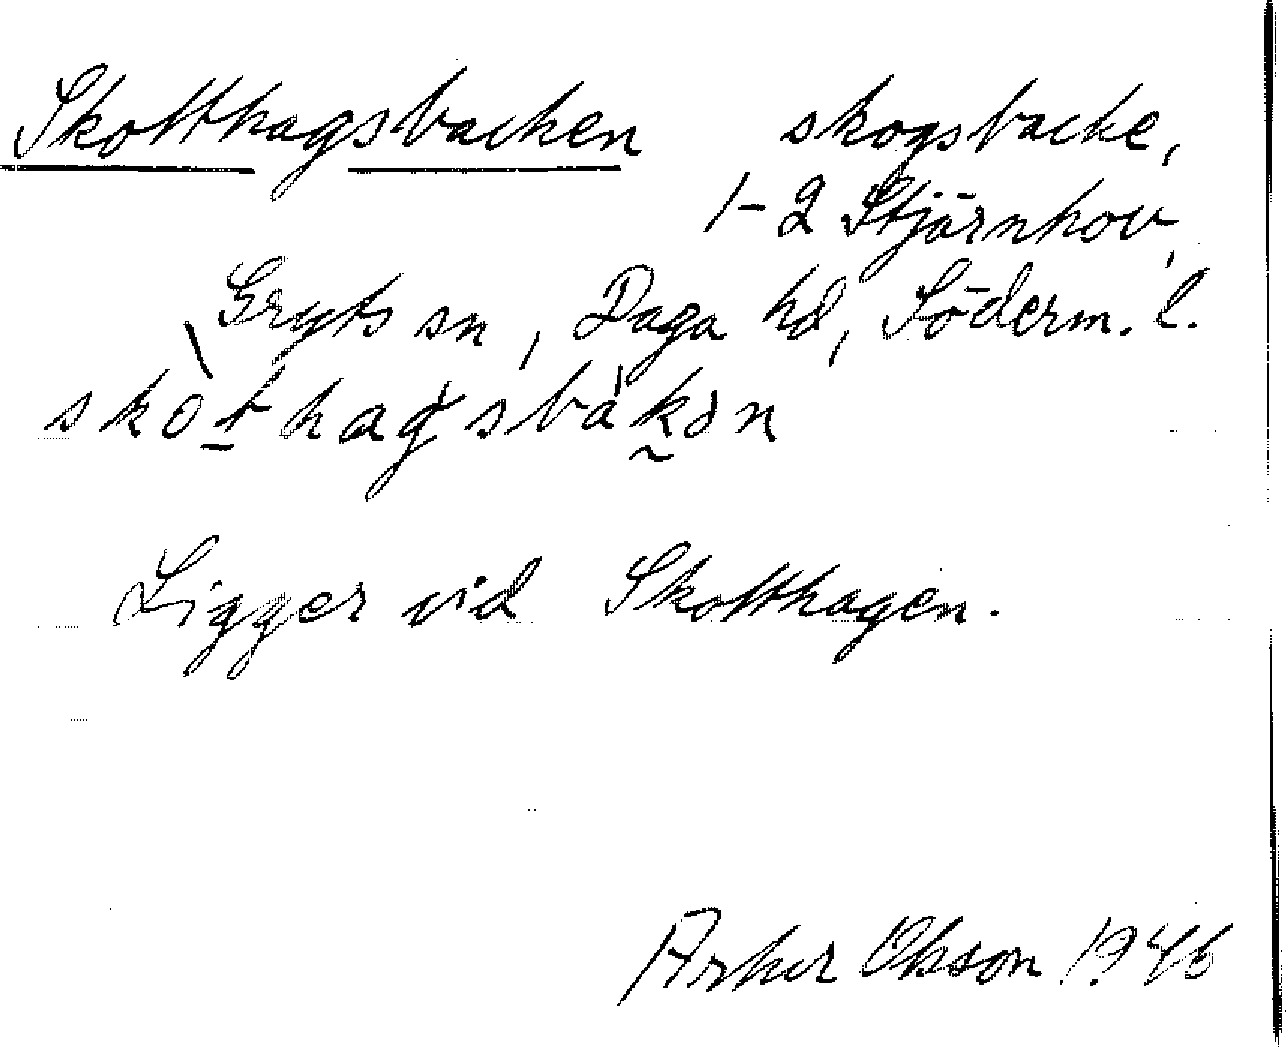 Skotthagsbacken skogsbacke,
1-2 Stjärnhov,
Gryts sn, Daga hd, Söderm. l.
skòt hagsbàkən
Ligger vid Skotthagen.
Olsson 1946